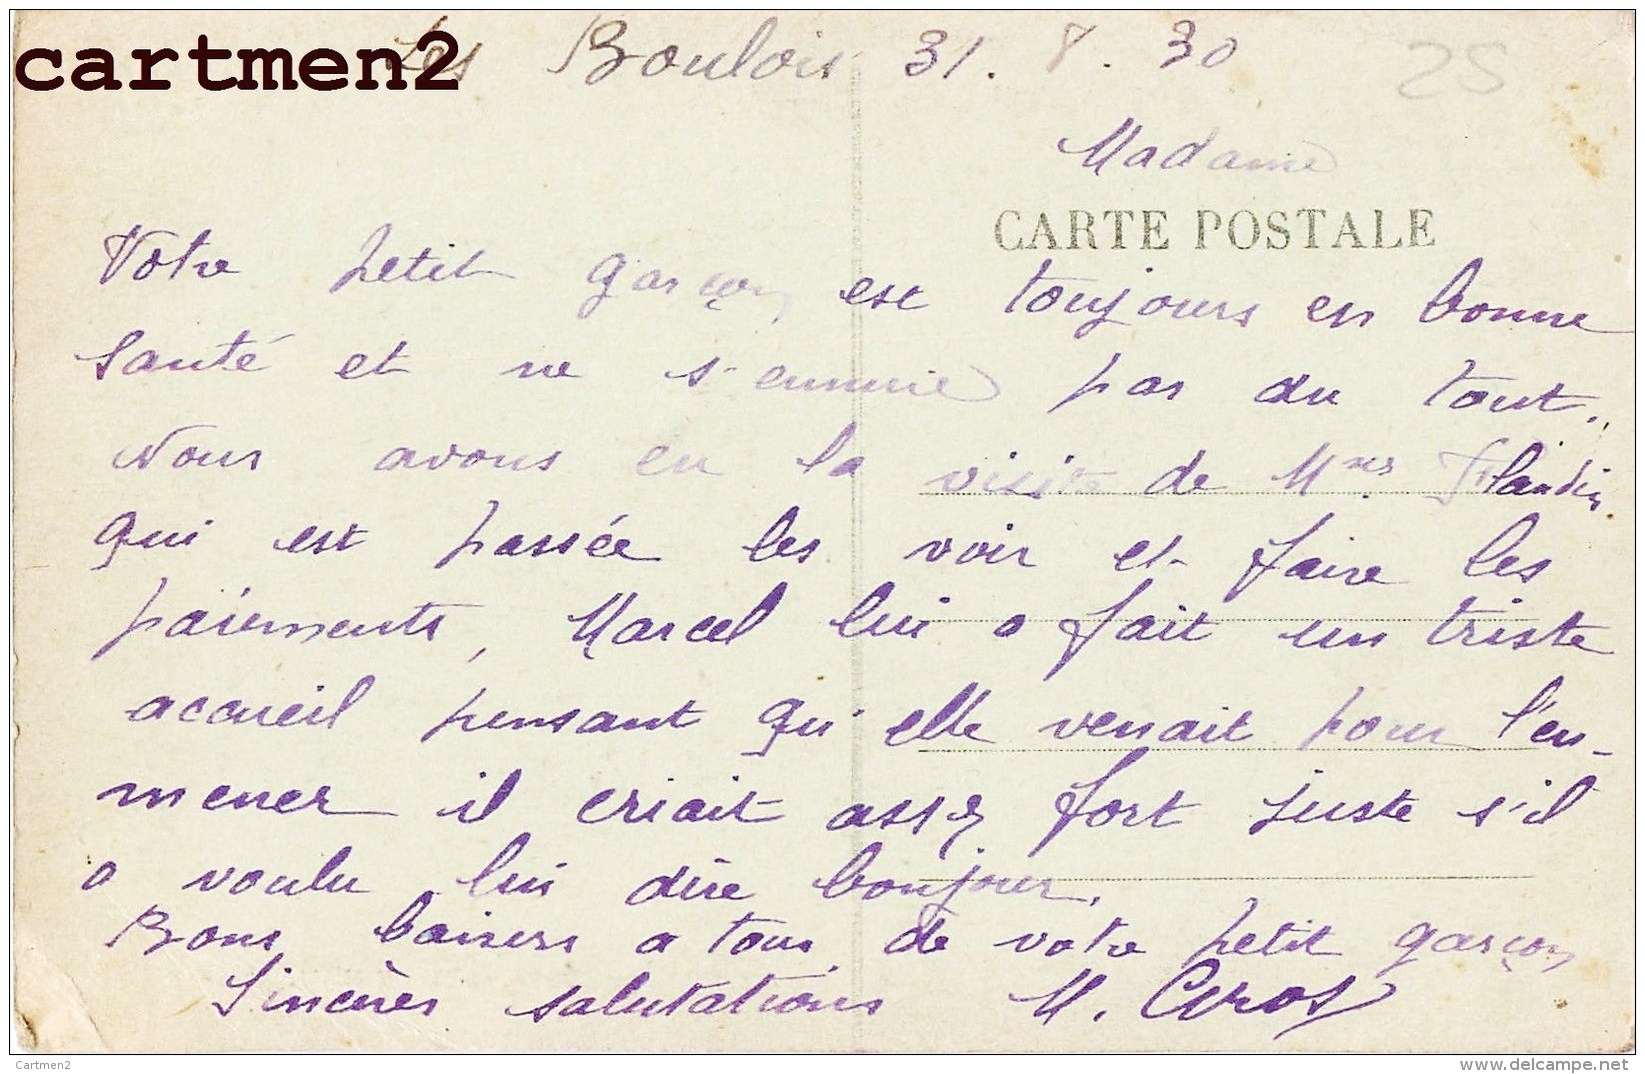 cartmen2
Les Boulois 31. 8. 30
25
Madame
CARTE POSTALE
Votre petit garçon est toujours en bonne
santé et ne s'ennuie pas du tout.
Nous avons eu la visite de Mme Flandin
qui est passée les voir et faire les
paiements, Marcel lui a fait un triste
accueil pensant qu'elle venait pour l'em-
mener il criait assez fort juste s'il
a voulu lui dire bonjour.
Bons baisers a tous de votre petit garçon
Sincères salutations M.
Cartmen2
www.delcampe.net